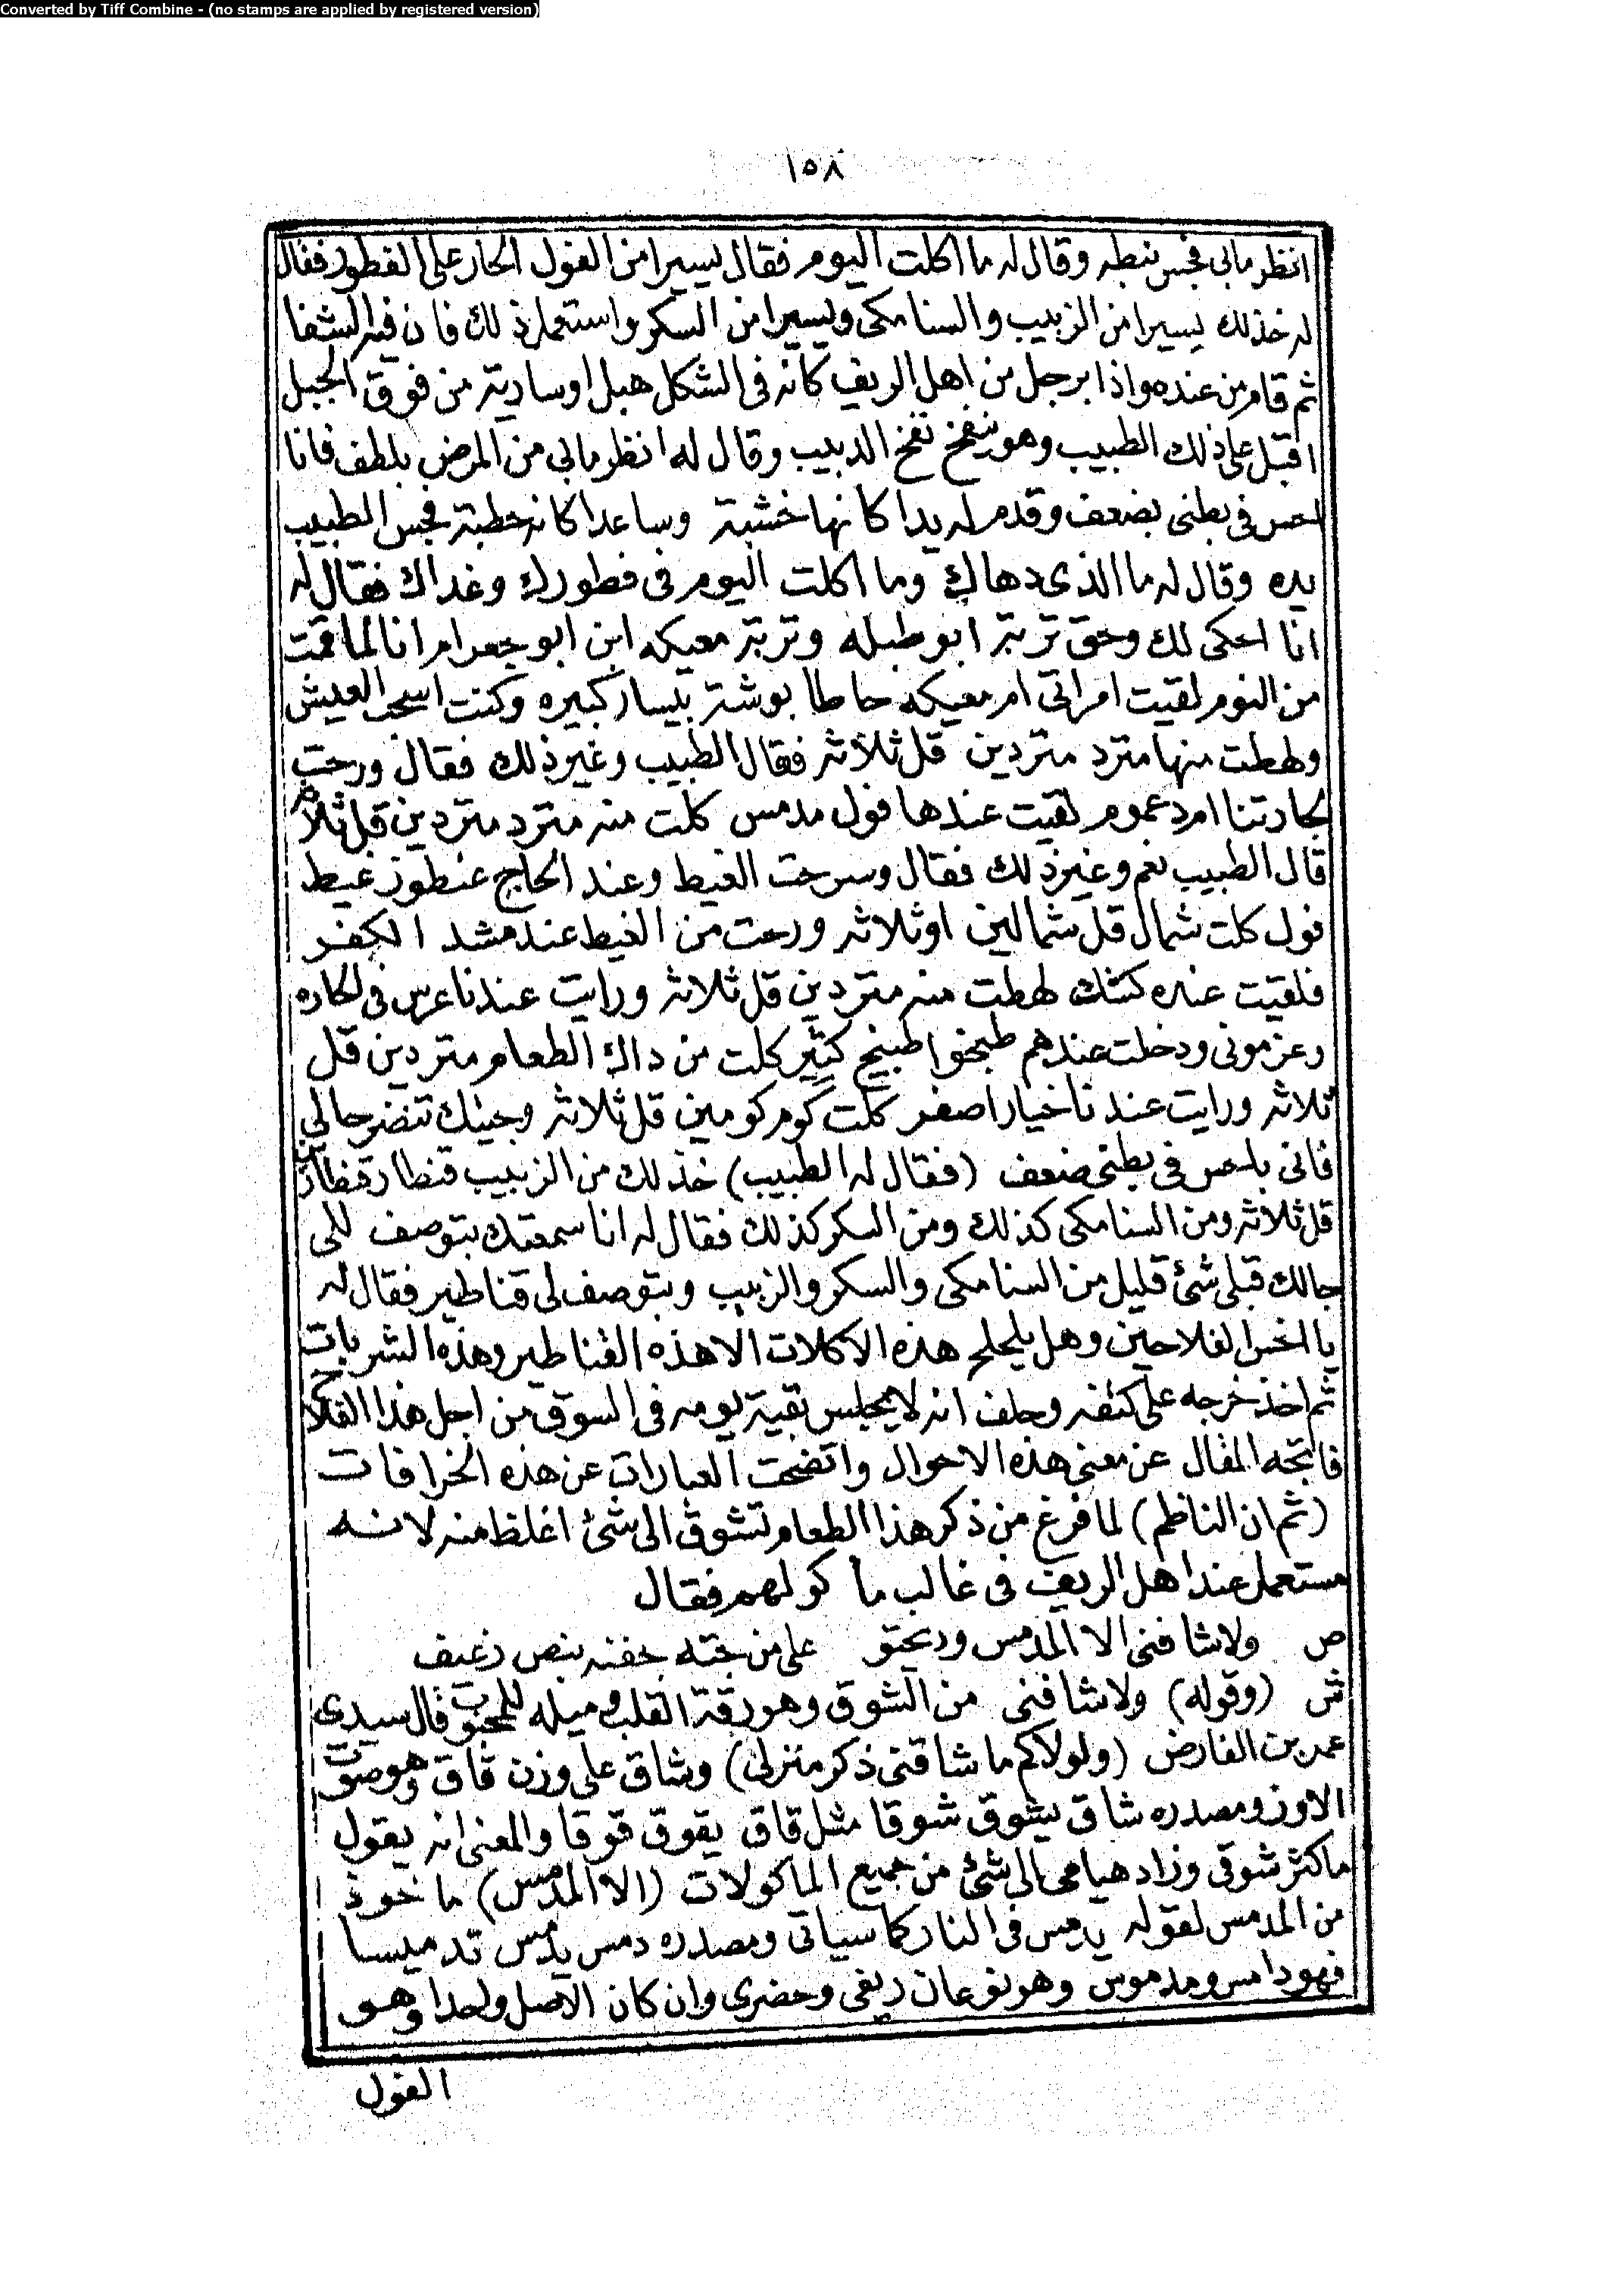 Converted by Tiff Combine - (no stamps are applied by registered version)
١٥٨
انظر مابى فجس نبطه وقال له ما اكلت اليوم فقال يسيرا من الفول الحار على الفطور فقال
له خذلك يسيرا من الزبيب والسنامكى ويسيرا من السكر واستعمل ذلك فان فيه الشفا
ثم قام من عنده واذا برجل من اهل الريف كانه فى الشكل هبل اوسارية من فوق الجبل
اقبل على ذلك الطبيب وهو ينفخ نفخ الدبيب وقال له انظر مابى من المرض بلطف فانا
احس فى بطنى بضعف وقدم له يدا كانها خشبة وساعدا كانه حطبة فجس الطبيب
يده وقال له ما الذى دهاك وما اكلت اليوم فى فطورك وغداك فقال له
انا احكى لك وحق تربة ابو طبله وتربة معيكه ابن ابو جعرام انا لما قمت
من النوم لقيت امراتى ام معيكه حاطا بوشة بيسار كبيره وكنت اسحب العيش
ولهطت منها مترد متردين قل ثلاثه فقال الطبيب وغير ذلك فقال ورحت
لجارتنا ام دعموم لقيت عندها فول مدمس كلت منه مترد متردين قل ثلاثه
قال الطبيب نعم وغير ذلك فقال وسرحت الغيط وعند الحاج عنطوز غيط
فول كلت شمال قل شمالين او ثلاثه ورحت من الغيط عند مشد الكفر
فلقيت عنده كشك لهطت منه متردين قل ثلاثه ورايت عندنا عرس فى الحاره
وعزمونى ودخلت عندهم طبخوا طبيخ كثير كلت من داك الطعام متردين قل
ثلاثه ورايت عندنا خيار اصفر كلت كوم كومين قل ثلاثه وجيتك تنضر حالى
فانى باحس فى بطنى ضعف (فقال له الطبيب) خذ لك من الزبيب قنطار قنطارين
قل ثلاثه ومن السنامكى كذلك ومن السكر كذلك فقال له انا سمعتك بتوصف للى
جالك قبلى شئ قليل من السنامكى والسكر والزبيب وبتوصف لى قناطير فقال له
يا اخس الفلاحين وهل يلحلح هذه الاكلات الا هذه القناطير وهذه الشربات
ثم اخذ خرجه على كتفه وحلف انه لا يجلس بقية يومه فى السوق من اجل هذا الفلاح
فاتجه المقال عن معنى هذه الاحوال واتضحت العبارات عن هذه الخرافات
(ثم ان الناظم) لما فرغ من ذكر هذا الطعام تشوق الى شئ اغلظ منه لانه
مستعمل عند اهل الريف فى غالب ما كولهم فقال
ص ولا شاقنى الا المدمس وريحتو على من جته جفنه بنص رغيف
ش (وقوله) ولا شاقنى من الشوق وهو رقة القلب وميله للمحبوب قال سيدى
عمر بن الفارض (ولولاكم ما شاقنى ذكر منزلى) وشاق على وزن قاق وهو صوت
الاوز ومصدره شاق يشوق شوقا مثل قاق يقوق قوقا والمعنى انه يقول
ما كثر شوقى وزاد هيامى الى شئ من جميع الماكولات (الا المدمس) ماخوذ
من المدمس لقوله يدمس فى النار كما سياتى ومصدره دمس يدمس تدميسا
فهو دامس ومدموس وهو نوعان ريفى وحضرى وان كان الاصل واحدا وهو
الفول